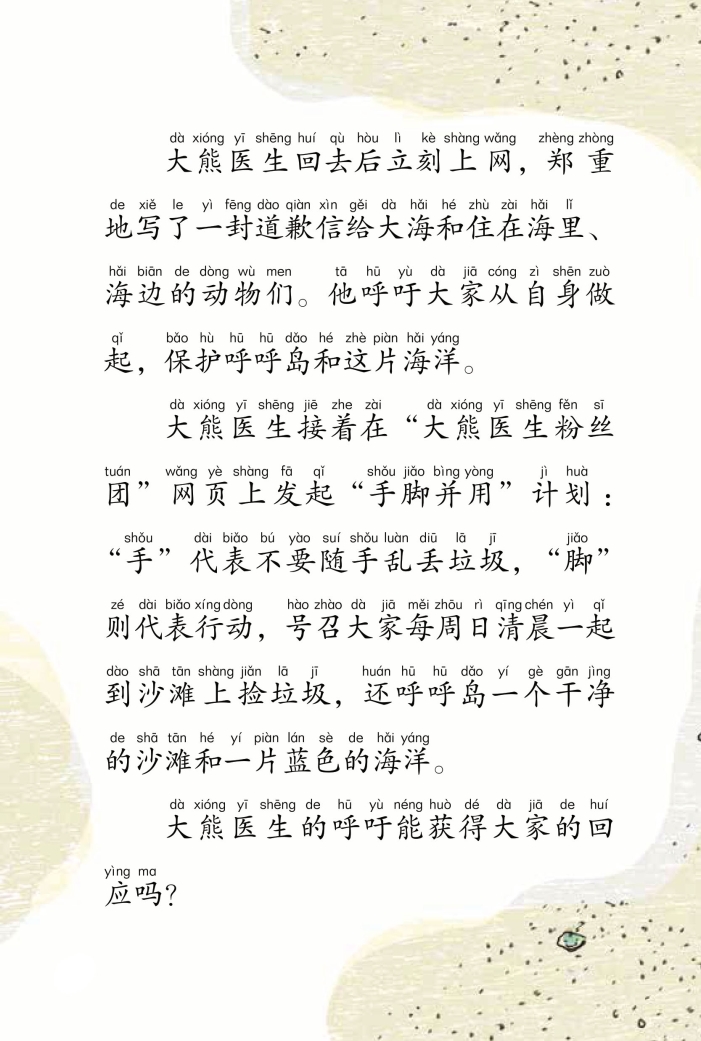 dà xióng yī shēng huí qù hòu lì kè shàng wǎng zhèng zhòng
大熊医生回去后立刻上网，郑重
de xiě le yì fēng dào qiàn xìn gěi dà hǎi hé zhù zài hǎi lǐ
地写了一封道歉信给大海和住在海里、
hǎi biān de dòng wù men tā hū yù dà jiā cóng zì shēn zuò
海边的动物们。他呼吁大家从自身做
qǐ bǎo hù hū hū dǎo hé zhè piàn hǎi yáng
起，保护呼呼岛和这片海洋。
dà xióng yī shēng jiē zhe zài dà xióng yī shēng fěn sī
大熊医生接着在“大熊医生粉丝
tuán wǎng yè shàng fā qǐ shǒu jiǎo bìng yòng jì huà
团”网页上发起“手脚并用”计划：
shǒu dài biǎo bú yào suí shǒu luàn diū lā jī jiǎo
“手”代表不要随手乱丢垃圾，“脚”
zé dài biǎo xíng dòng hào zhào dà jiā měi zhōu rì qīng chén yì qǐ
则代表行动，号召大家每周日清晨一起
dào shā tān shàng jiǎn lā jī huán hū hū dǎo yí gè gān jìng
到沙滩上捡垃圾，还呼呼岛一个干净
de shā tān hé yí piàn lán sè de hǎi yáng
的沙滩和一片蓝色的海洋。
dà xióng yī shēng de hū yù néng huò dé dà jiā de huí
大熊医生的呼吁能获得大家的回
yìng ma
应吗？